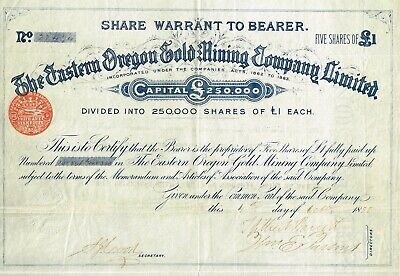 SHARE WARRANT TO BEARER.
No
FIVE SHARES OF £1
The Eastern Oregon Gold Mining Company Limited.
INCORPORATED UNDER THE COMPANIES ACTS, 1862 TO 1883.
CAPITAL £250.000
DIVIDED INTO 250,000 SHARES OF £1 EACH.
This is to Certify that the Bearer is the proprietor of Five Shares of £1 fully paid up
Numbered in The Eastern Oregon Gold Mining Company Limited
subject to the terms of the Memorandum and Articles of Association of the said Company.
Given under the Common Seal of the said Company
this day of 18
SECRETARY.
DIRECTORS